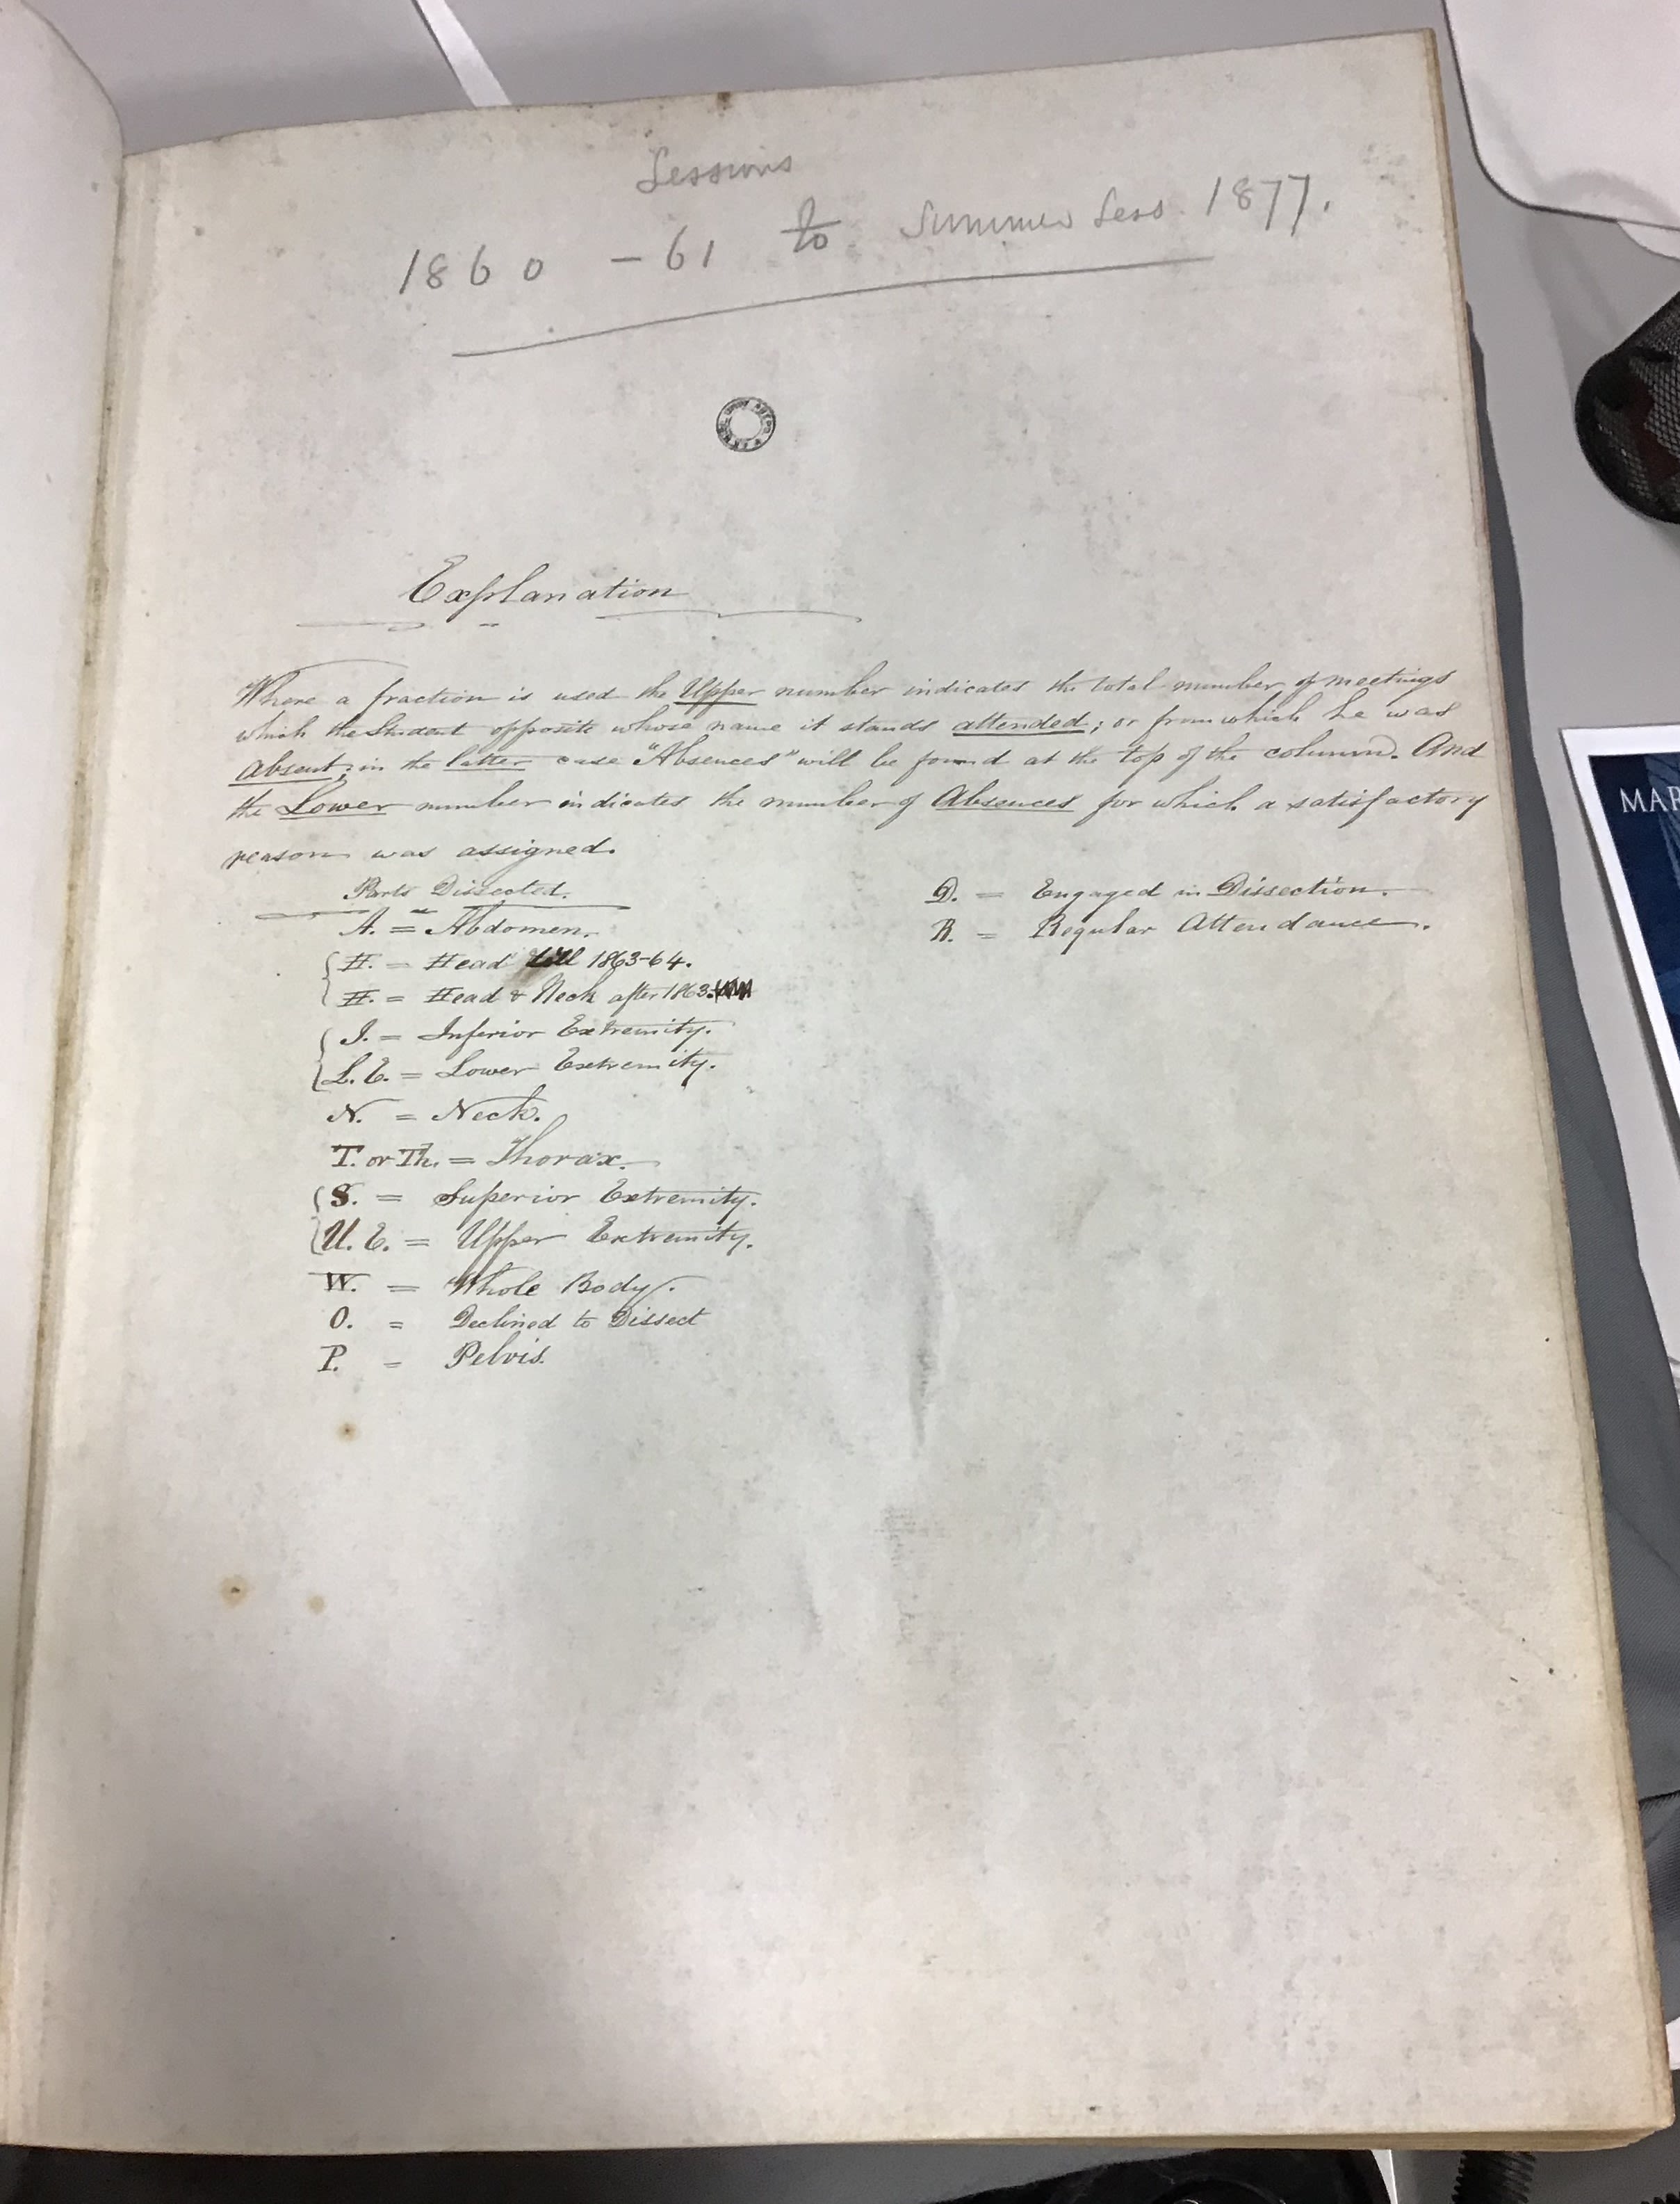 Sessions
1860-61 to Summer Sess. 1877.
Explanation
Where a fraction is used the Upper number indicates the total number of meetings
which the Student opposite whose name it stands attended; or from which he was
Absent; in the latter case "Absences" will be found at the top of the column. And
the Lower number indicates the number of Absences for which a satisfactory
reason was assigned.
Parts Dissected.
A. = Abdomen.
H. = Head till 1863-64.
H. = Head & Neck after 1863.
I. = Inferior Extremity.
L.E. = Lower Extremity.
N. = Neck.
T. or Th. = Thorax.
S. = Superior Extremity.
U.E. = Upper Extremity.
W. = Whole Body.
O. = Declined to Dissect
P. = Pelvis.
D. = Engaged in Dissection.
R. = Regular Attendance.
MAR